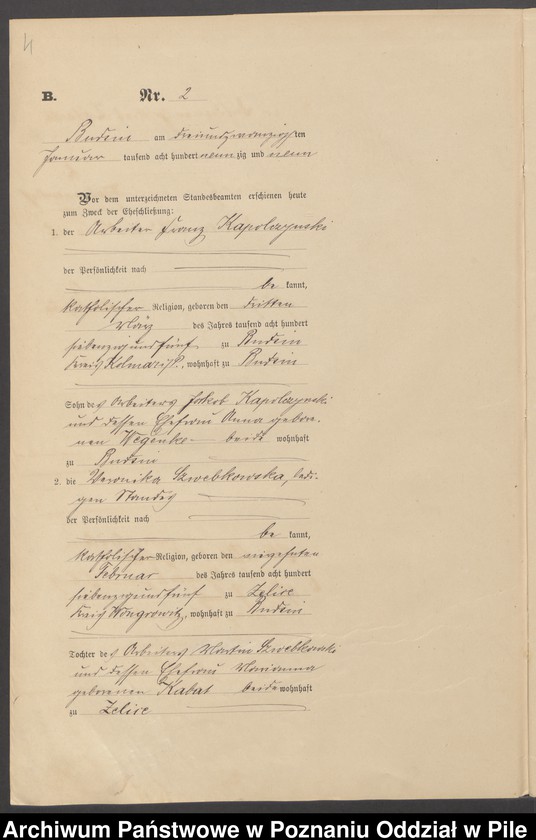 4
B. Nr. 2
Budsin am dreiundzwanzigsten
Januar tausend acht hundert neunzig und neun
Vor dem unterzeichneten Standesbeamten erschienen heute
zum Zweck der Eheschließung:
1. der Arbeiter Franz Kapolczynski
der Persönlichkeit nach
be kannt,
katholischer Religion, geboren den dritten
März des Jahres tausend acht hundert
siebenzigundfünf zu Budsin
Kreis Kolmar i/P., wohnhaft zu Budsin
Sohn des Arbeiters Jakob Kapolczynski
und dessen Ehefrau Anna gebore-
nen Wegenke beide wohnhaft
zu Budsin
2. die Veronika Szwebkowska, ledi-
gen Standes
der Persönlichkeit nach
be kannt,
katholischer Religion, geboren den
Februar des Jahres tausend acht hundert
siebenzigundfünf zu Zelice
Kreis Wongrowitz, wohnhaft zu Budsin
Tochter des Arbeiters Martin Szwebkowski
und dessen Ehefrau Marianna
geborenen Kabat beide wohnhaft
zu Zelice
Archiwum Państwowe w Poznaniu Oddział w Pile